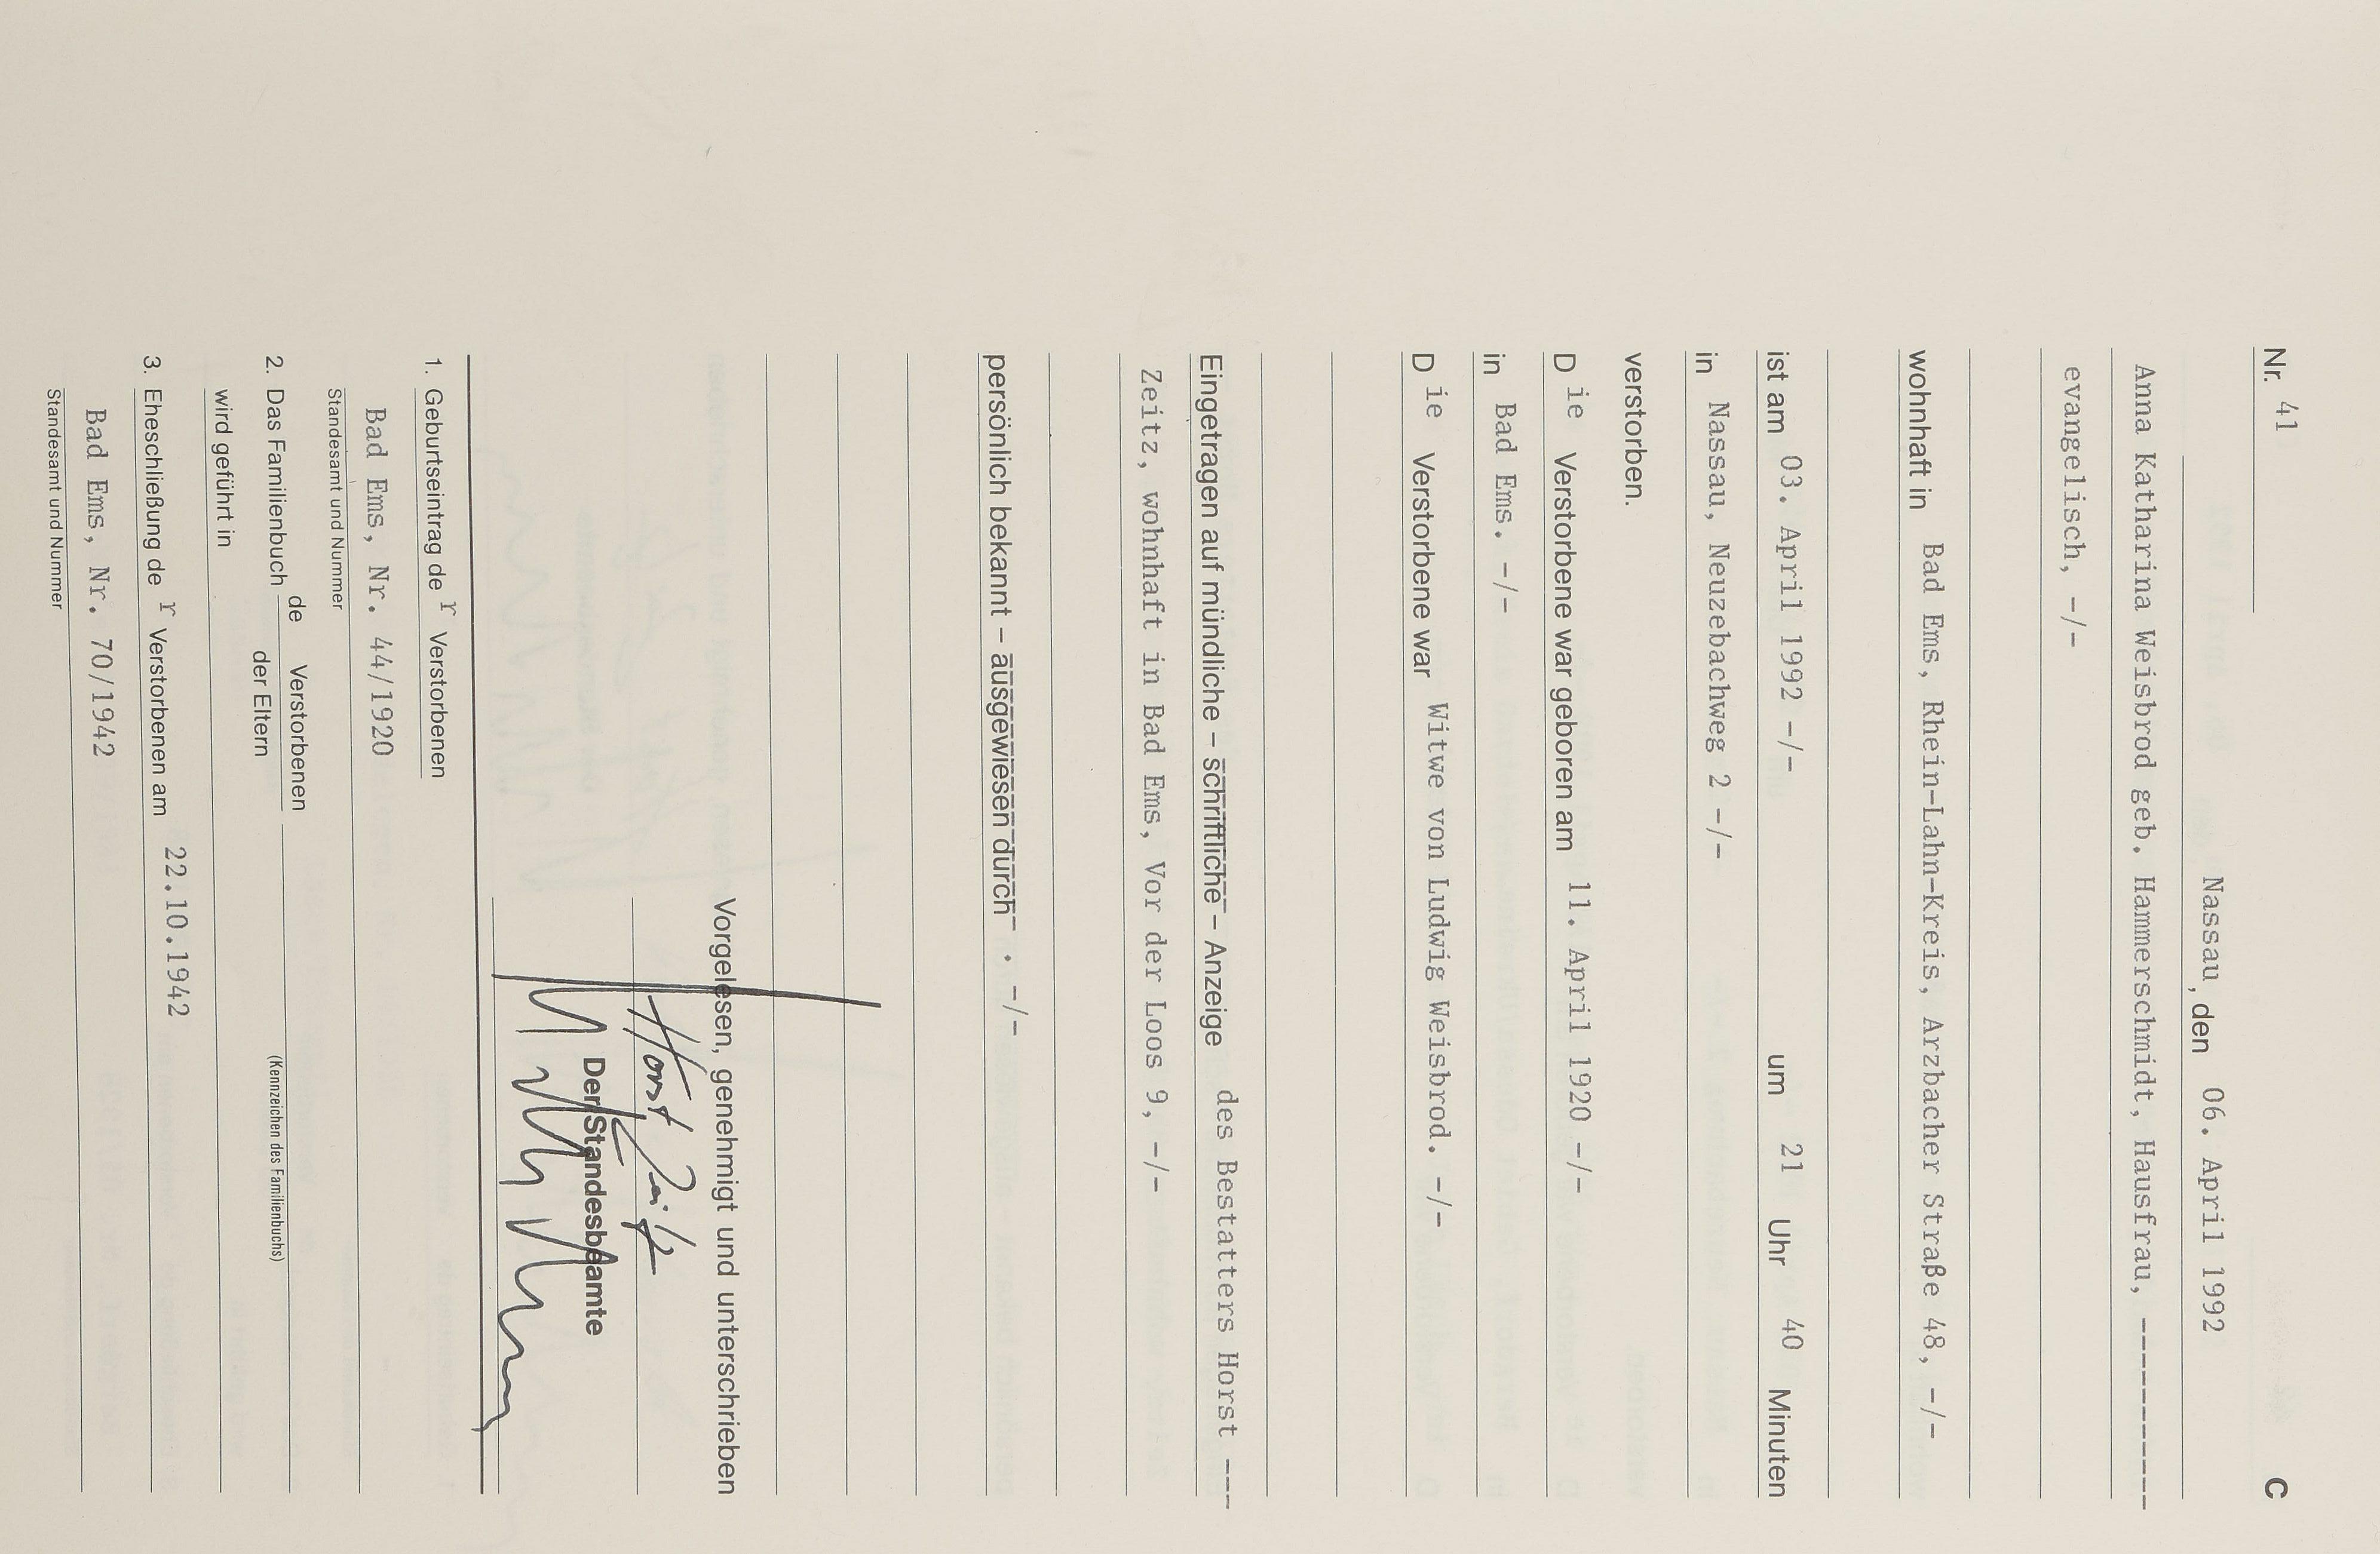 Nr. 41 C
Nassau, den 06. April 1992
Anna Katharina Weisbrod geb. Hammerschmidt, Hausfrau, -----------
evangelisch, -/-
wohnhaft in Bad Ems, Rhein-Lahn-Kreis, Arzbacher Straße 48, -/-
ist am 03. April 1992 -/- um 21 Uhr 40 Minuten
in Nassau, Neuzebachweg 2 -/-
verstorben.
Die Verstorbene war geboren am 11. April 1920 -/-
in Bad Ems. -/-
Die Verstorbene war Witwe von Ludwig Weisbrod. -/-
Eingetragen auf mündliche – schriftliche – Anzeige des Bestatters Horst ---
Zeitz, wohnhaft in Bad Ems, Vor der Loos 9, -/-
persönlich bekannt – ausgewiesen durch . -/-
Vorgelesen, genehmigt und unterschrieben
Horst Zeitz
Der Standesbeamte
1. Geburtseintrag der Verstorbenen
Bad Ems, Nr. 44/1920
Standesamt und Nummer
2. Das Familienbuch de Verstorbenen
der Eltern
(Kennzeichen des Familienbuchs)
wird geführt in
3. Eheschließung der Verstorbenen am 22.10.1942
Bad Ems, Nr. 70/1942
Standesamt und Nummer